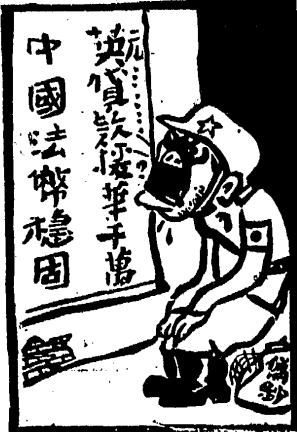 元
英貸款援華千萬
中國法幣穩固
偽鈔